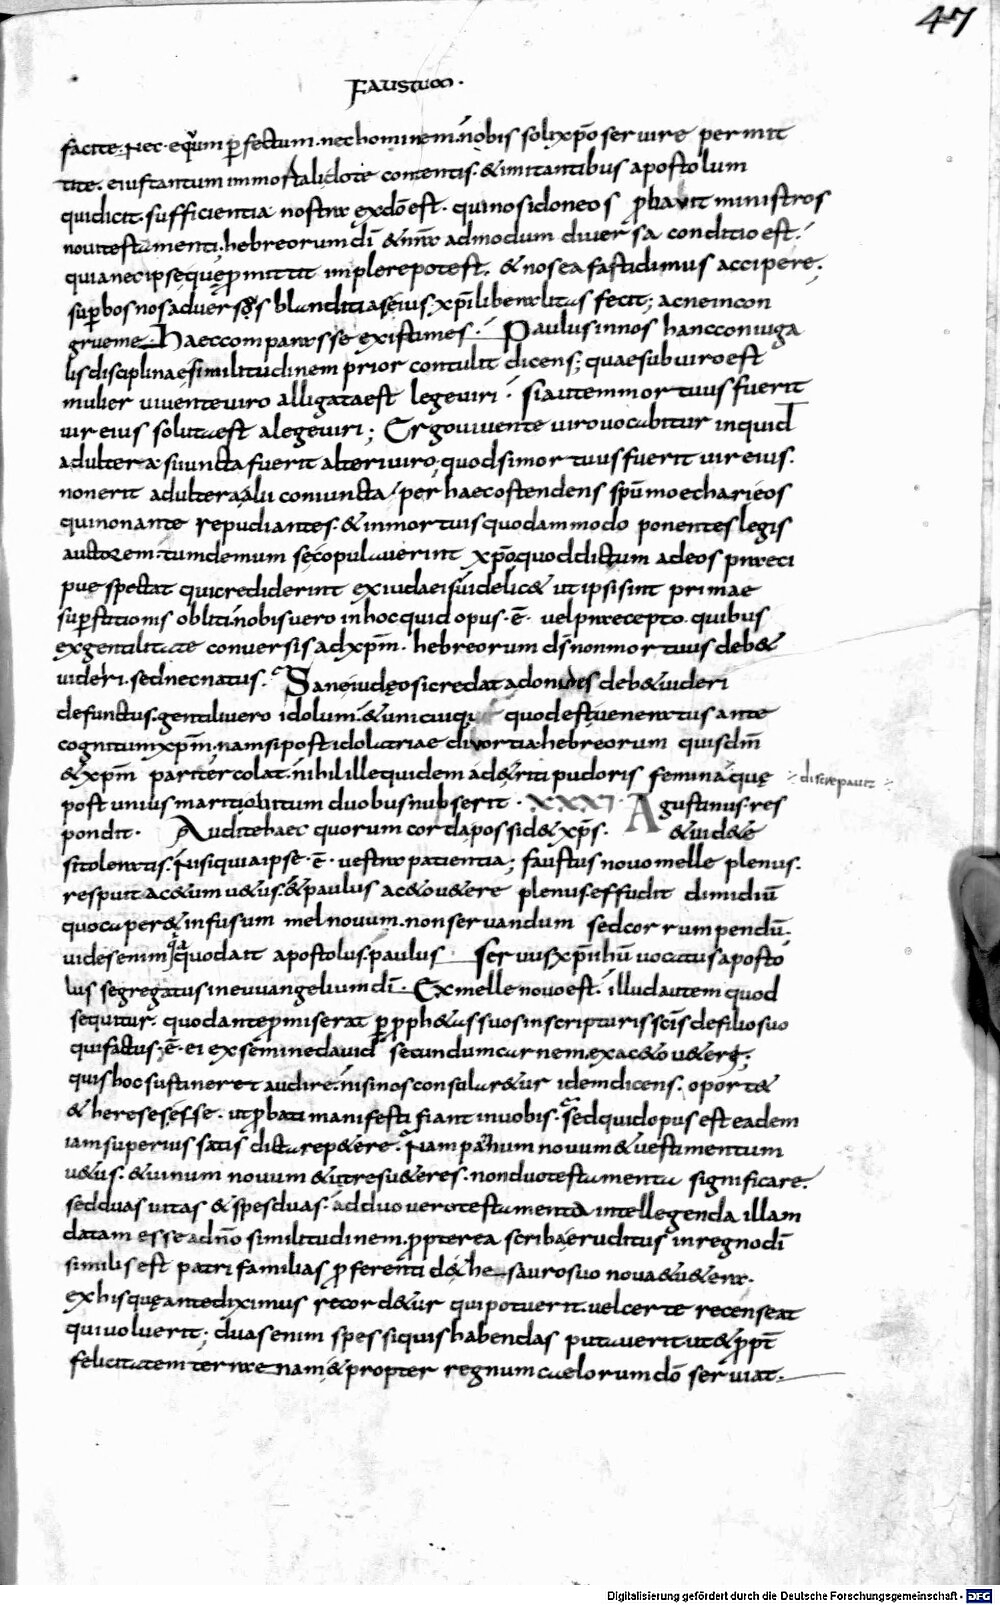 47
FAUSTUM·
facite. nec equum perfectum. nec hominem. nobis soli xp̄o servire permit
tite. eius tantum immortali dote contentis. & imitantibus apostolum
qui dicit. sufficientia nostra ex dō est. qui nos idoneos probavit ministros
novi testamenti. hebreorum dī & nr̄a admodum diversa conditio est.
quia nec ipse quę promittit implere potest. & nos ea fastidimus accipere.
superbos nos adversos blanditias eius. xp̄i liberalitas fecit; ac ne incon
gruem& haec comparasse existimes. Paulus in nos hanc coniuga
lis disciplinae similitudinem prior contulit dicens; quae sub viro est
mulier vivente viro alligata est legeviri. si autem mortuus fuerit
vir eius soluta est a lege viri; Ergo vivente viro vocabitur inquid
adultera si iuncta fuerit alteri viro. quod si mortuus fuerit vir eius.
non erit adultera alii coniuncta. per haec ostendens spū moechari eos
qui non ante repudiantes. & in mortuis quodammodo ponentes legis
auctorem. tum demum se copulaverint xp̄o. quod dictum ad eos praeci
pue spectat qui crediderint ex iudaeis videlic& ut ipsi sint primae
superstitionis obliti. nobis vero in hoc quid opus ·ē· vel praecepto. quibus
ex gentilitate conversis ad xp̄m. hebreorum ds̄ non mortuus deb&
videri. sed nec natus. Sane iudęo si credat adonis deb& videri
defunctus. gentili vero idolum. & unicuique quod est veneratus ante
cognitum xp̄m. nam si post idolatriae divortia. hebreorum quis dm̄
& xp̄m pariter colat. nihil ille quidem ad&riti pudoris femina quę discrepavit
post unius mariti obitum duobus nubserit· XXXI· Agustinus· res
pondit· Audite haec quorum corda possid& xp̄s. & vid&e
si toleratis. nisi quia ipse ·ē· vestra patientia; faustus novo melle plenus.
respuit ac&um v&us. & paulus ac&o v&ere plenus. effudit dimidiū
quo caper& infusum mel novum. non servandum sed corrumpendū·
vides enim quia quod ait apostolus paulus servus xp̄i ihū vocatus aposto
lus segregatus in euvangelium dī· Ex melle novo est. illud autem quod
sequitur. quod ante promiserat per pph&as suos in scripturis scīs de filio suo
qui factus ·ē· ei ex semine david secundum carnem. ex ac&o v&ere;
quis hoc sustineret audire. nisi nos consolar&ur idem dicens. oport&
& hereses esse. ut probati manifesti fiant in vobis. sed quid opus est eadem
iam superius satis dicta rep&ere. nam pannum novum & vestimentum
v&us. & vinum novum & utres v&eres. non duo testamenta significare.
sed duas vitas & spes duas. ad duo vero testamenta intellegenda illam
datam esse a dn̄o similitudinem. propterea scriba eruditus in regno dī
similis est patri familias proferenti de thesauro suo nova & v&era.
ex his quę ante diximus record&ur qui potuerit. vel certe recenseat
qui voluerit; duas enim spes si quis habendas putaverit. ut & propt̄
felicitatem terrae nam & propter regnum caelorum dō serviat.
Digitalisierung gefördert durch die Deutsche Forschungsgemeinschaft - DFG